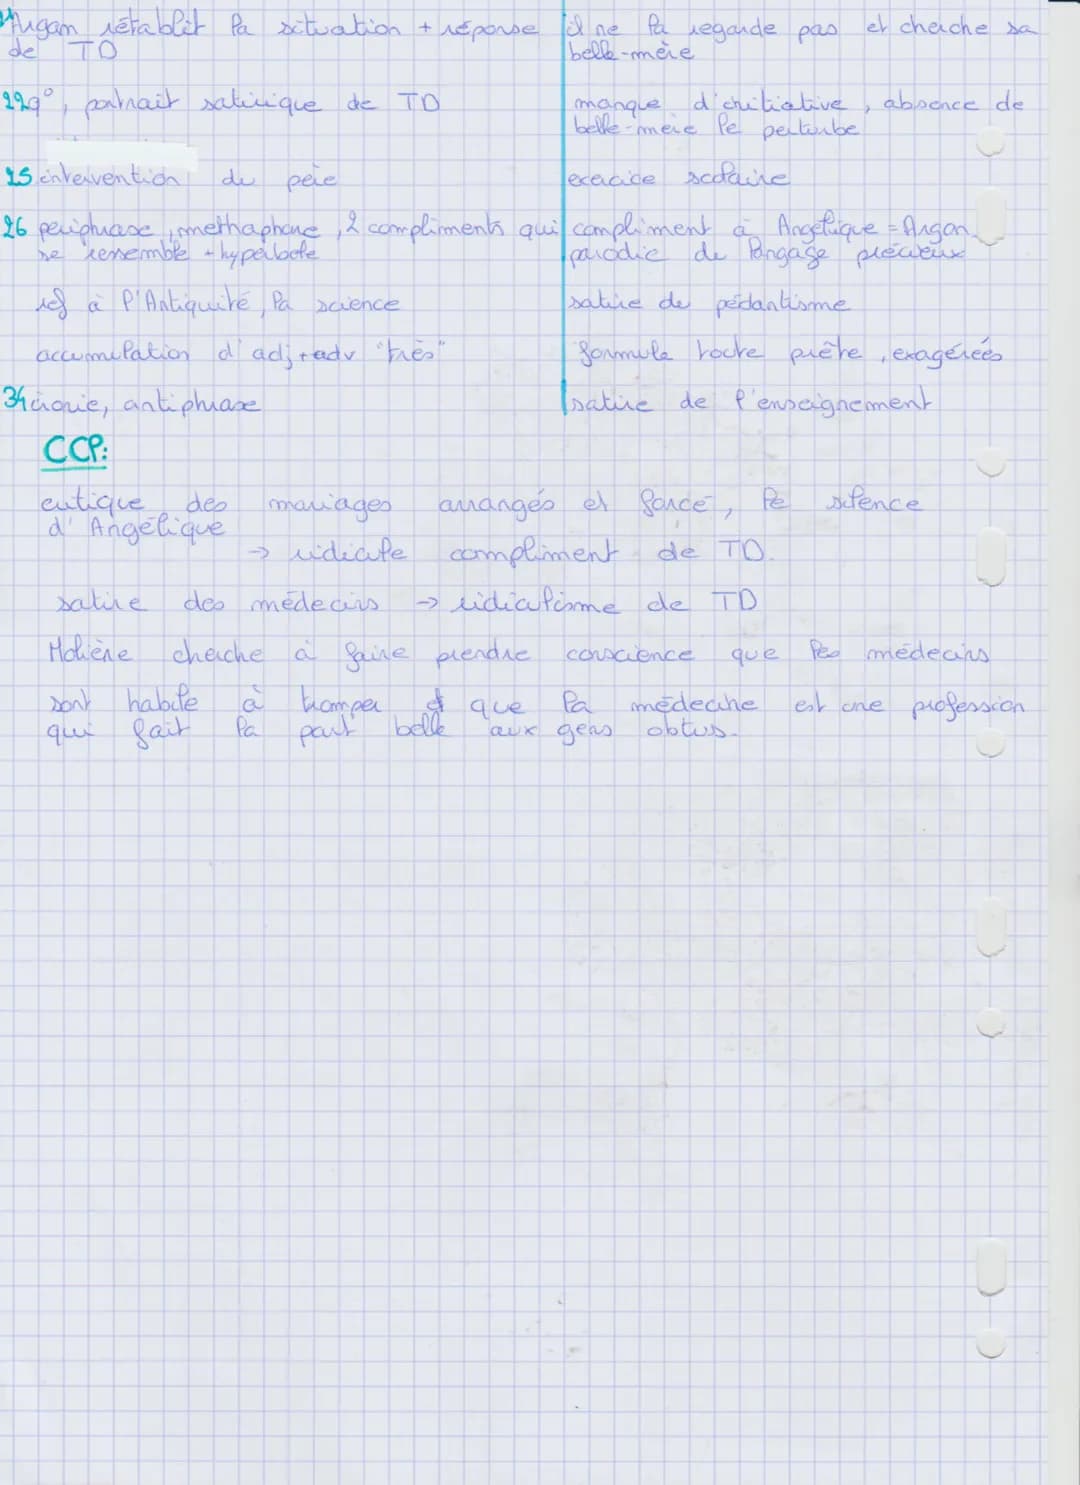 Argan rétablit la situation + réponse
de TD
il ne la regarde pas et cherche sa
belle-mère
22 q°, portrait satirique de TD
manque d'initiative, absence de
belle-mère le perturbe
25 intervention du père
exercice scolaire
26 periphrase, methaphore, 2 compliments qui
se ressemble + hyperbole
compliment à Angélique = Argan
parodie du langage précieux
ref à l'Antiquité, la science
satire du pédantisme
accumulation d'adj + adv "très"
formule toute prête, exagérées
34 ironie, antiphrase
satire de l'enseignement
CCP:
critique des mariages arrangés et forcé, le silence
d'Angélique
→ ridicule compliment de TD.
satire des médecins → ridiculisme de TD
Molière cherche à faire prendre conscience que les médecins
sont habile à tromper et que la médecine est une profession
qui fait la part belle aux gens obtus.